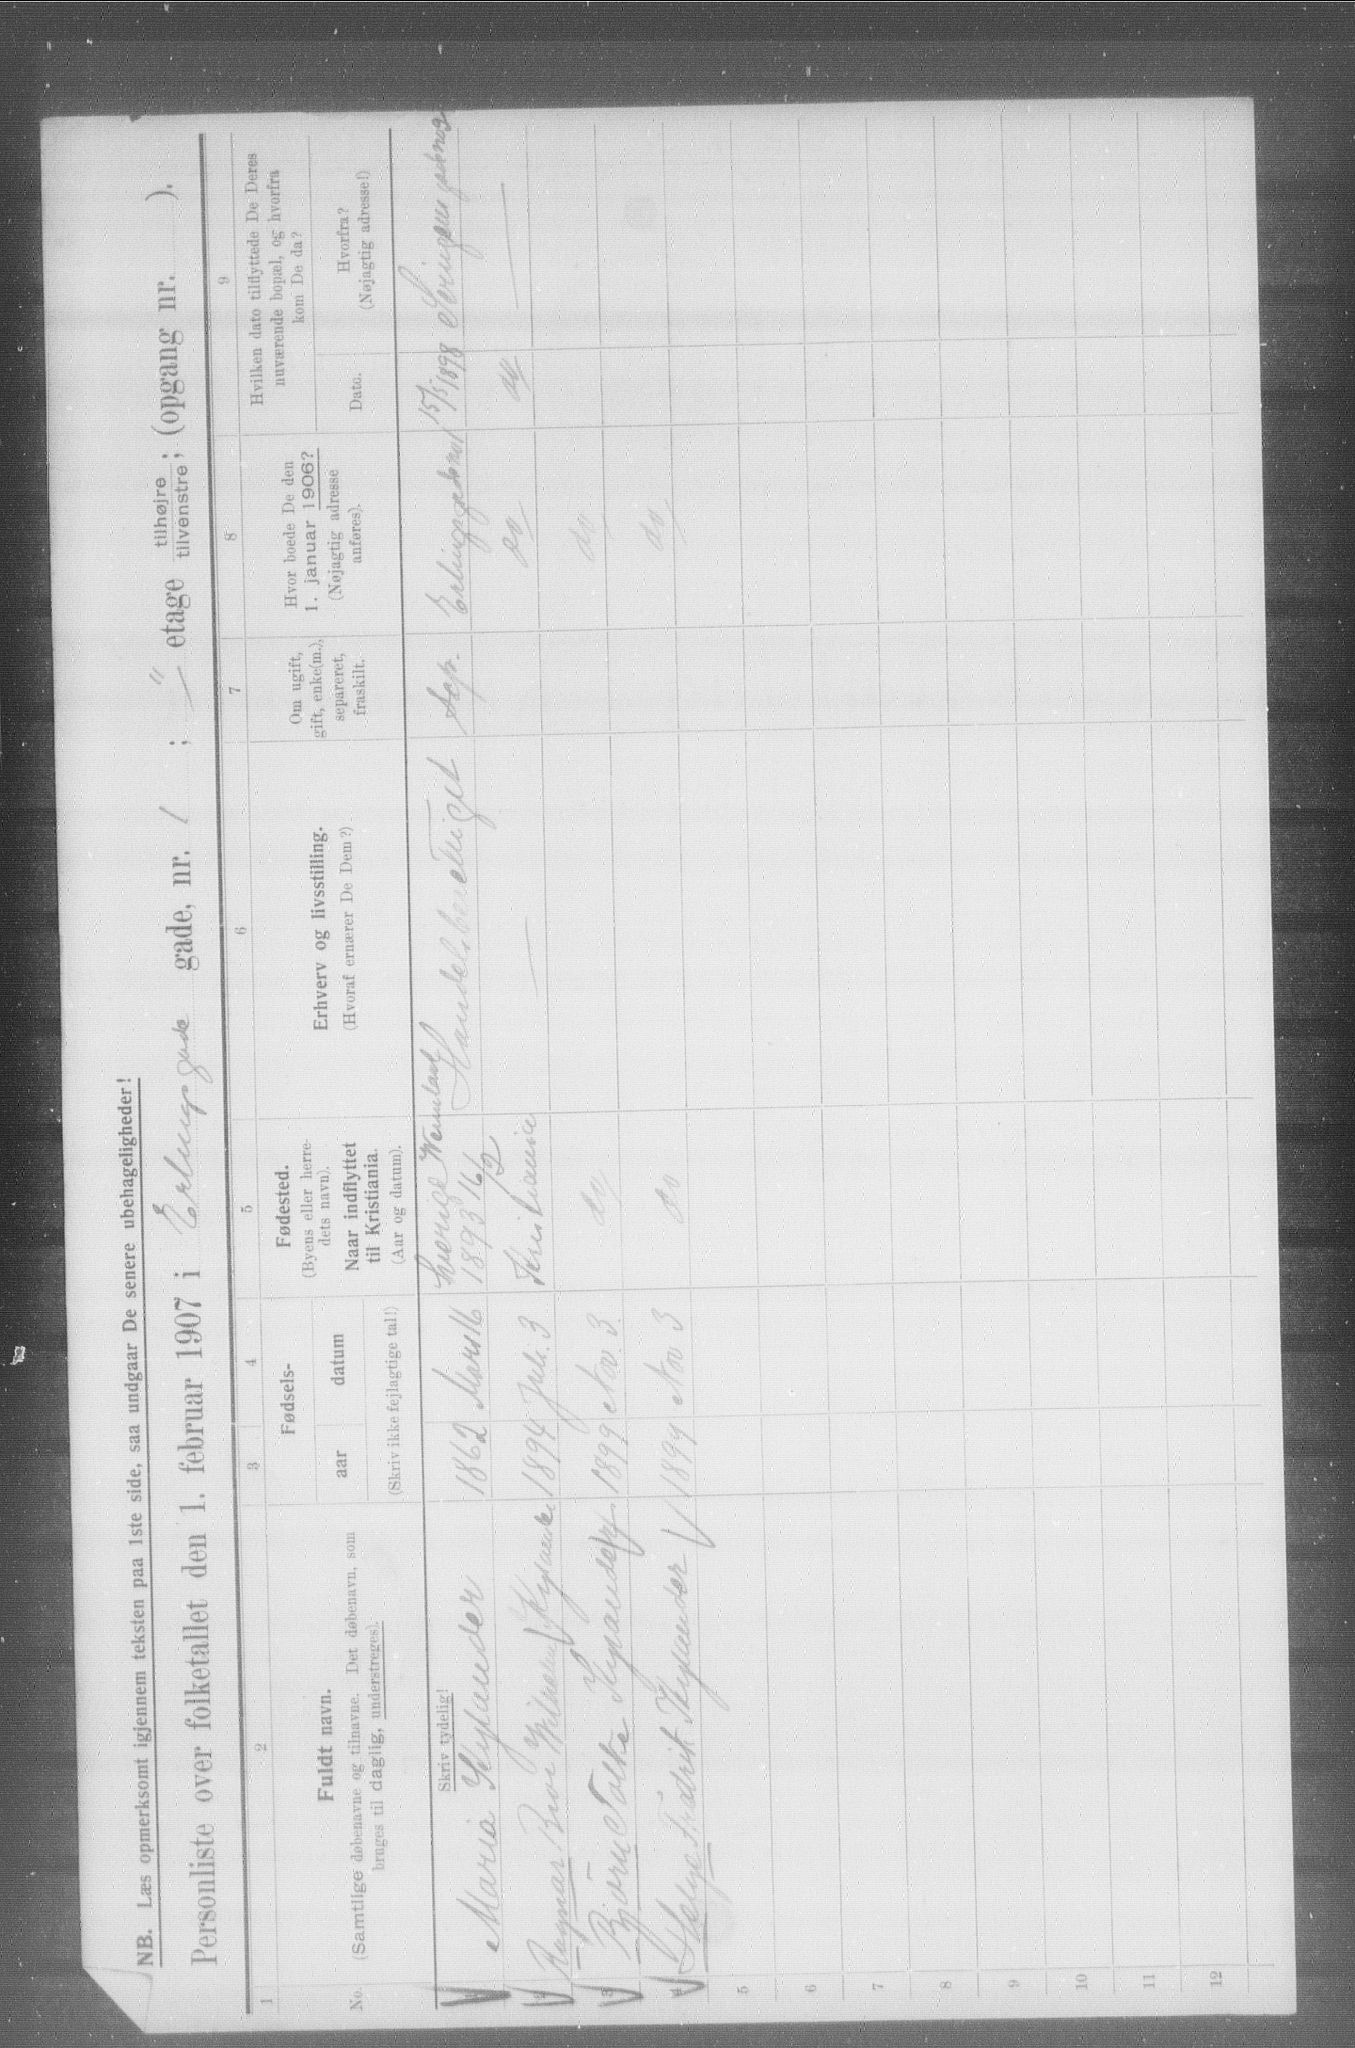 NB. Læs opmerksomt igjennem teksten paa 1ste side, saa undgaar De senere ubehageligheder!
Personliste over folketallet den 1. februar 1907 i Erlingsgade gade, nr. 1 ; — " etage tilhøjre tilvenstre ; (opgang nr. ).
1 2 3 4 5 6 7 8 9
No.
Fuldt navn.
(Samtlige døbenavne og tilnavne. Det døbenavn, som
bruges til daglig, understreges).
Fødsels-
aar datum
(Skriv ikke fejlagtige tal!)
Fødested.
(Byens eller herre-
dets navn).
Naar indflyttet
til Kristiania.
(Aar og datum).
Erhverv og livsstilling.
(Hvoraf ernærer De Dem?)
Om ugift,
gift, enke(m.),
separeret,
fraskilt.
Hvor boede De den
1. januar 1906?
(Nøjagtig adresse
anføres).
Hvilken dato tilflyttede De Deres
nuværende bopæl, og hvorfra
kom De da?
Dato.
Hvorfra?
(Nøjagtig adresse!)
Skriv tydelig!
1 Maria 1862 Mars 16 Sverige Wermland 1893 16/2 Handelsberettiget Sep. 15/3 1898
2 Ragnar 1894 Juli 3 Kristiania — do do —
3 Björn 1899 Nov. 3. do do
4 Fredrik 1899 Nov 3 do do
5
6
7
8
9
10
11
12